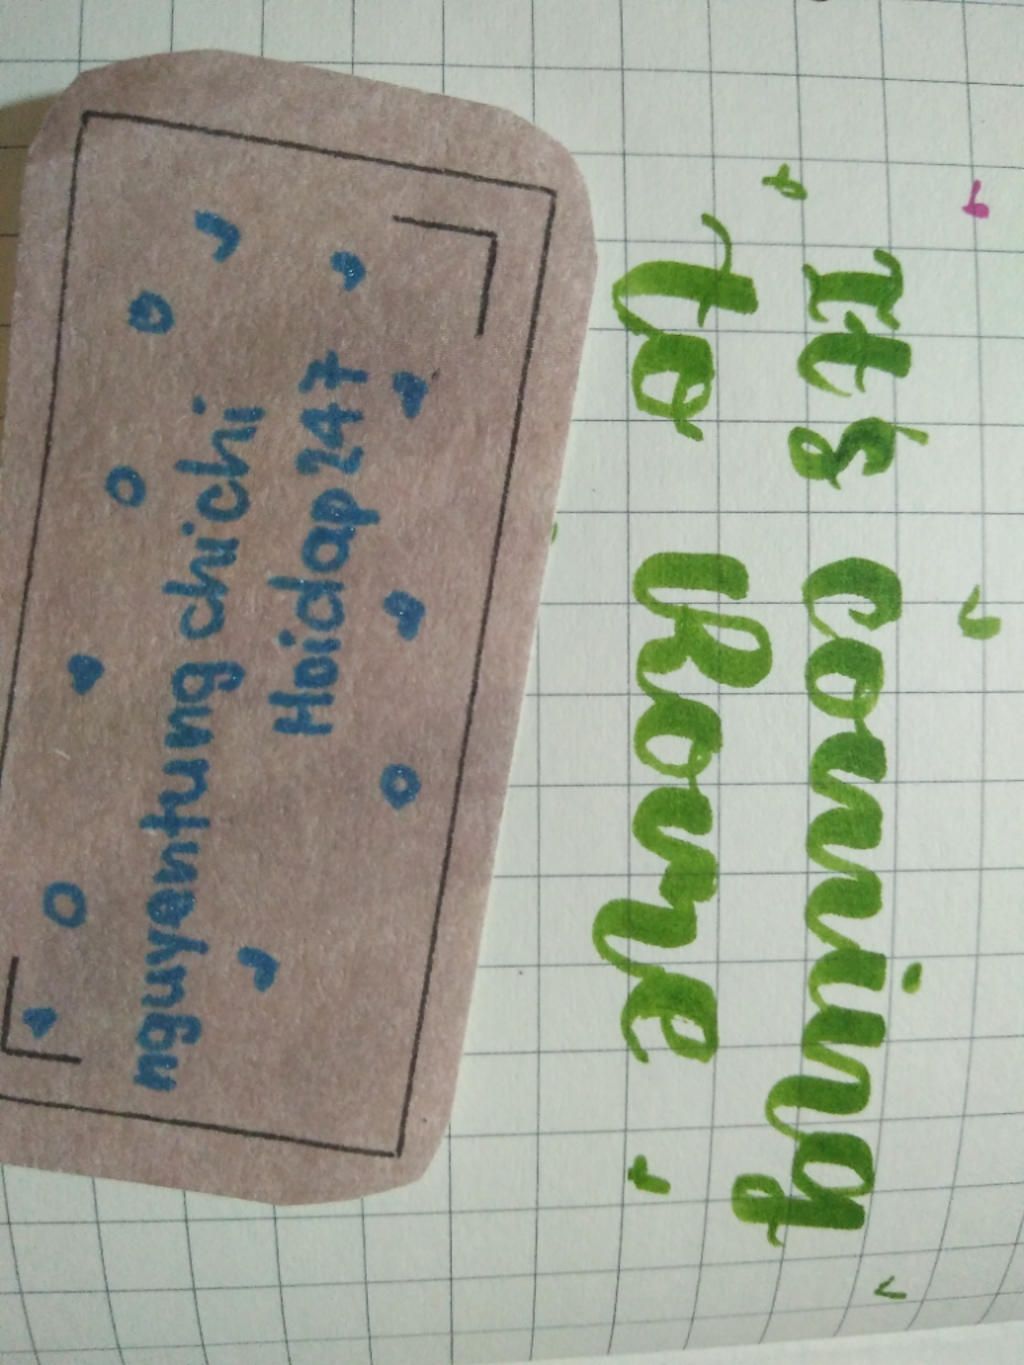 It's coming
to Rome
nguyentung chichi
Hoidap247